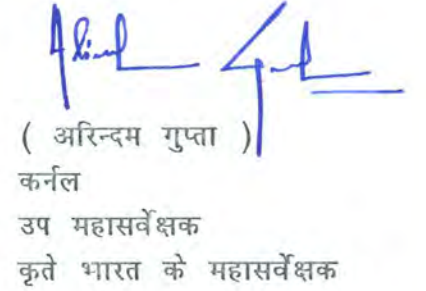 ( अरिन्दम गुप्ता )
कर्नल
उप महासर्वेक्षक
कृते भारत के महासर्वेक्षक